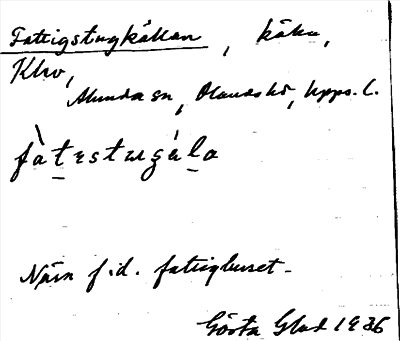 Fattigstugkällan, källa,
Klev,
Alunda sn, Olands hd, Upps. l.
fàtestugála
Nära f.d. fattighuset.
Gösta Glad 1936